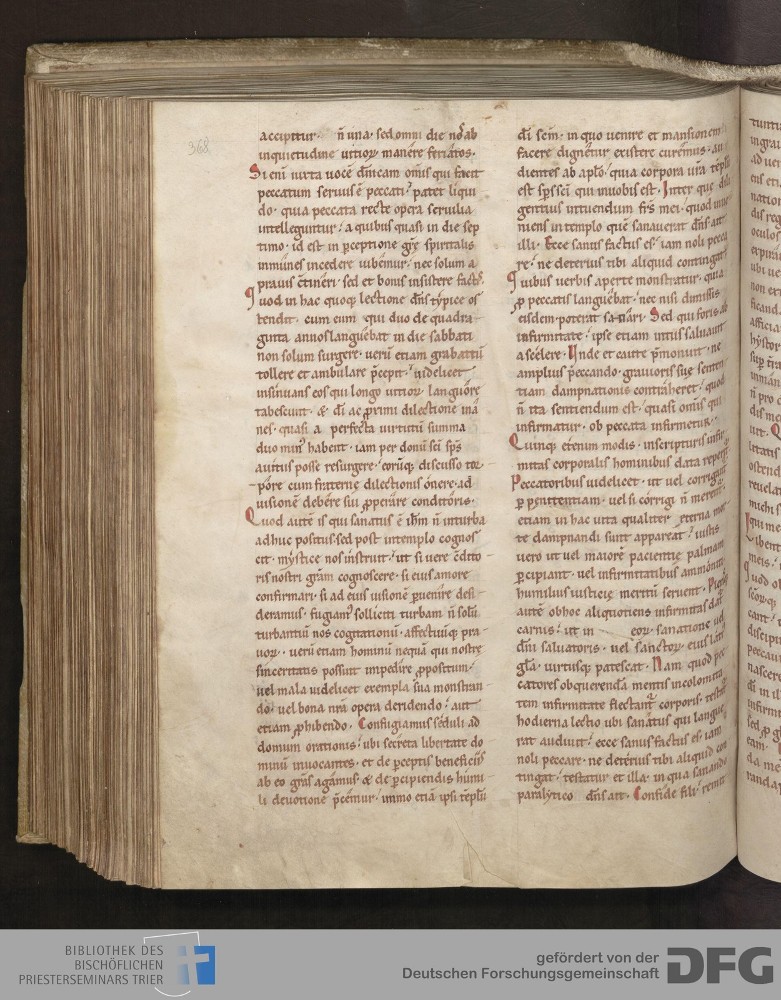 368
accipitur· n̄ una· sed omni die nos ab
inquietudine uitioꝝ manere feriatos·
Si enī iuxta uocē dn̄icam om̄is qui facit
peccatum seruus ē peccati· patet liqui
do· quia peccata recte opera seruilia
intelleguntur· a quibus quasi in die sep
timo· id est in ꝑceptione grē spiritalis
inmunes incedere iubemur· nec solum a
prauis ↄtineri· sed et bonis insistere factis·
Quod in hac quoqꝫ lectione dn̄s typice os
tendit· cum eum qui duo de quadra
ginta annos languebat in die sabbati
non solum surgere· uerū etiam grabattū
tollere et ambulare p̄cepit· uidelicet
insinuans eos qui longo uitioꝝ languore
tabescunt· & dī ac ꝓximi dilectione ina
nes· quasi a perfecta uirtutū summa
duo min' habent· iam per donū sc̄i sp̄s
auitus posse resurgere· eorūqꝫ discusso tor
pore cum fraternę dilectionis onere· ad
uisionē debere sui ꝓperare conditoris·
Quod autē is qui sanatus ē ihm̄ n̄ in turba
adhuc positus· sed post in templo cognos
cit· mystice nos instruit· ut si uere ↄdito
ris nostri grām cognoscere· si eius amore
confirmari· si ad eius uisionē ꝑuenire desi
deramus· fugiam' solliciti turbam n̄ solū
turbantiū nos cogitationū· affectuūqꝫ pra
uoꝝ· uerū etiam hominū nequā qui nostrę
sinceritatis possunt impedire ꝓpositum·
uel mala uidelicet exempla sua monstran
do· uel bona nr̄a opera deridendo· aut
etiam ꝓhibendo· Confugiamus seduli ad
domum orationis· ubi secreta libertate do
minū inuocantes· et de ꝑceptis beneficiis
ab eo grās agamus· & de ꝑcipiendis humi
li deuotione p̄cemur· immo etiā ipsi templū
dī sc̄m· in quo uenire et mansionem
facere dignetur existere curemus· au
dientes ab aplo· quia corpora ur̄a templū
est sp̄s sc̄i qui in uobis est· Inter quę dili
gentius intuendum frs̄ mei· quod inue
niens in templo quē sanauerat dn̄s ait
illi· Ecce sanus factus es· iam noli pecca
re· ne deterius tibi aliquid contingat·
Quibus uerbis aperte monstratur· quia
ꝓ peccatis languebat· nec nisi dimissis
eisdem poterat sanari· Sed qui foris ab
infirmitate· ipse etiam intus saluauit
a scelere· Unde et caute p̄monuit· ne
amplius peccando· grauioris suę senten
tiam dampnationis contraheret· quod
n̄ ita sentiendum est· quasi om̄is qui
infirmatur· ob peccata infirmetur·
Quinqꝫ etenim modis· in scripturis infir
mitas corporalis hominibus data reperit̄·
Peccatoribus uidelicet· ut uel corrigant̄
ꝑ penitentiam· uel si corrigi n̄ merent̄
etiam in hac uita qualiter ęterna mor
te dampnandi sunt appareat· iustis
uero ut uel maiorē pacientię palmam
ꝑcipiant· uel infirmitatibus ammoniti
humilius iusticię meritū seruent·
autē ob hoc aliquotiens infirmitas dat̄
carnis· ut in eoꝝ sanatione uel
dn̄i saluatoris· uel sanctoꝝ eius late
gl̄a· uirtusqꝫ patescat· Nam quod pec
catores ob querenda mentis incolomita
tem infirmitate flectant̄ corporis· testat̄
hodierna lectio ubi sanatus qui langue
rat audiuit· ecce sanus factus es· iam
noli peccare· ne deterius tibi aliquid con
tingat· testatur et illa· in qua sanando
paralytico dn̄s ait· Confide fili· remit
BIBLIOTHEK DES
BISCHÖFLICHEN
PRIESTERSEMINARS TRIER
gefördert von der
Deutschen Forschungsgemeinschaft
DFG